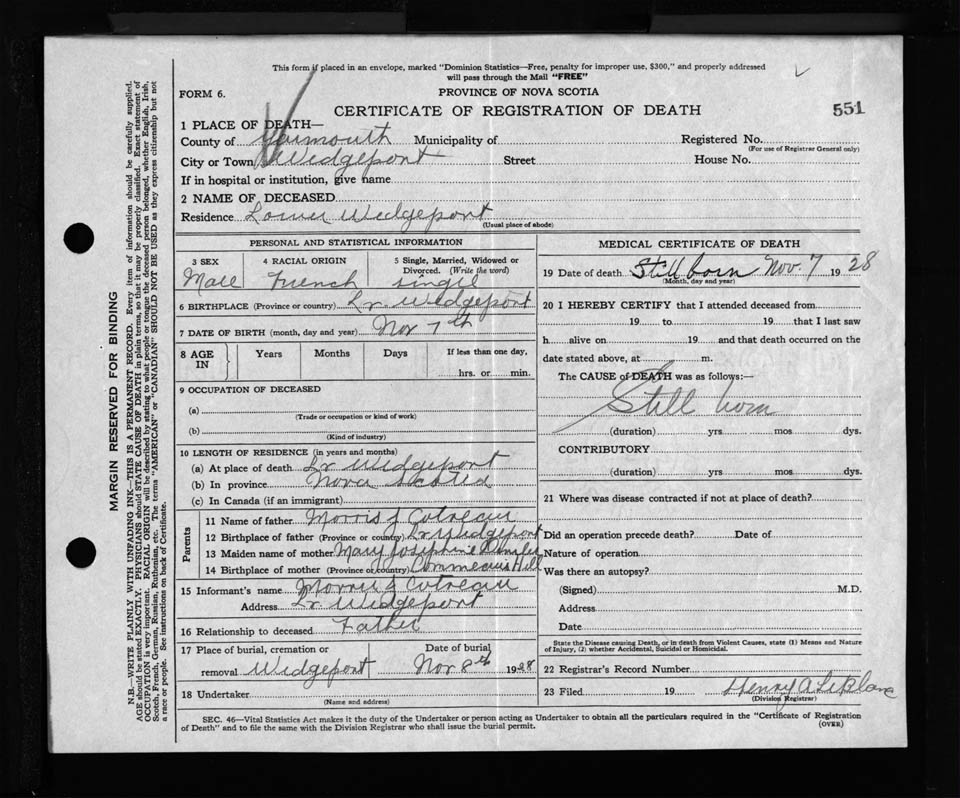 This form if placed in an envelope, marked "Dominion Statistics—Free, penalty for improper use, $300," and properly addressed
will pass through the Mail "FREE"
FORM 6.
PROVINCE OF NOVA SCOTIA
CERTIFICATE OF REGISTRATION OF DEATH
551
1 PLACE OF DEATH—
County of Yarmouth Municipality of Registered No.
(For use of Registrar General only)
City or Town Wedgeport Street House No.
If in hospital or institution, give name
2 NAME OF DECEASED
Residence Lower Wedgeport
(Usual place of abode)
PERSONAL AND STATISTICAL INFORMATION
3 SEX 4 RACIAL ORIGIN 5 Single, Married, Widowed or
Divorced. (Write the word)
Male French single
6 BIRTHPLACE (Province or country) Lr. Wedgeport
7 DATE OF BIRTH (month, day and year) Nov 7th
8 AGE IN Years Months Days If less than one day,
hrs. or min.
9 OCCUPATION OF DECEASED
(a)
(Trade or occupation or kind of work)
(b)
(Kind of industry)
10 LENGTH OF RESIDENCE (in years and months)
(a) At place of death Lr Wedgeport
(b) In province Nova Scotia
(c) In Canada (if an immigrant)
Parents
11 Name of father Morris J Cotreau
12 Birthplace of father (Province or country) Lr Wedgeport
13 Maiden name of mother Mary Josephine
14 Birthplace of mother (Province or country) Commeaus Hill
15 Informant's name Morris J Cotreau
Address Lr. Wedgeport
16 Relationship to deceased Father
17 Place of burial, cremation or Date of burial
removal Wedgeport Nov 8th 1928
18 Undertaker
(Name and address)
MEDICAL CERTIFICATE OF DEATH
19 Date of death Still born Nov. 7 1928
(Month, day and year)
20 I HEREBY CERTIFY that I attended deceased from
19 to 19 that I last saw
h alive on 19 and that death occurred on the
date stated above, at m.
The CAUSE of DEATH was as follows:—
Still born
(duration) yrs mos dys.
CONTRIBUTORY
(duration) yrs mos dys.
21 Where was disease contracted if not at place of death?
Did an operation precede death? Date of
Nature of operation
Was there an autopsy?
(Signed) M.D.
Address
Date
State the Disease causing Death, or in death from Violent Causes, state (1) Means and Nature
of Injury, (2) whether Accidental, Suicidal or Homicidal.
22 Registrar's Record Number
23 Filed 19 Henry A LeBlanc
(Division Registrar)
SEC. 46—Vital Statistics Act makes it the duty of the Undertaker or person acting as Undertaker to obtain all the particulars required in the "Certificate of Registration
of Death" and to file the same with the Division Registrar who shall issue the burial permit.
(OVER)
MARGIN RESERVED FOR BINDING
N.B.—WRITE PLAINLY WITH UNFADING INK—THIS IS A PERMANENT RECORD. Every item of information should be carefully supplied.
AGE should be stated EXACTLY. PHYSICIANS should STATE CAUSE OF DEATH in plain terms, so that it may be properly classified. Exact statement of
OCCUPATION is very important. RACIAL ORIGIN will be described by stating to what people or tongue the deceased person belonged, whether English, Irish,
Scotch, French, German, Russian, Ruthenian, etc. The terms "AMERICAN" or "CANADIAN" SHOULD NOT BE USED as they express citizenship but not
a race or people. See instructions on back of Certificate.